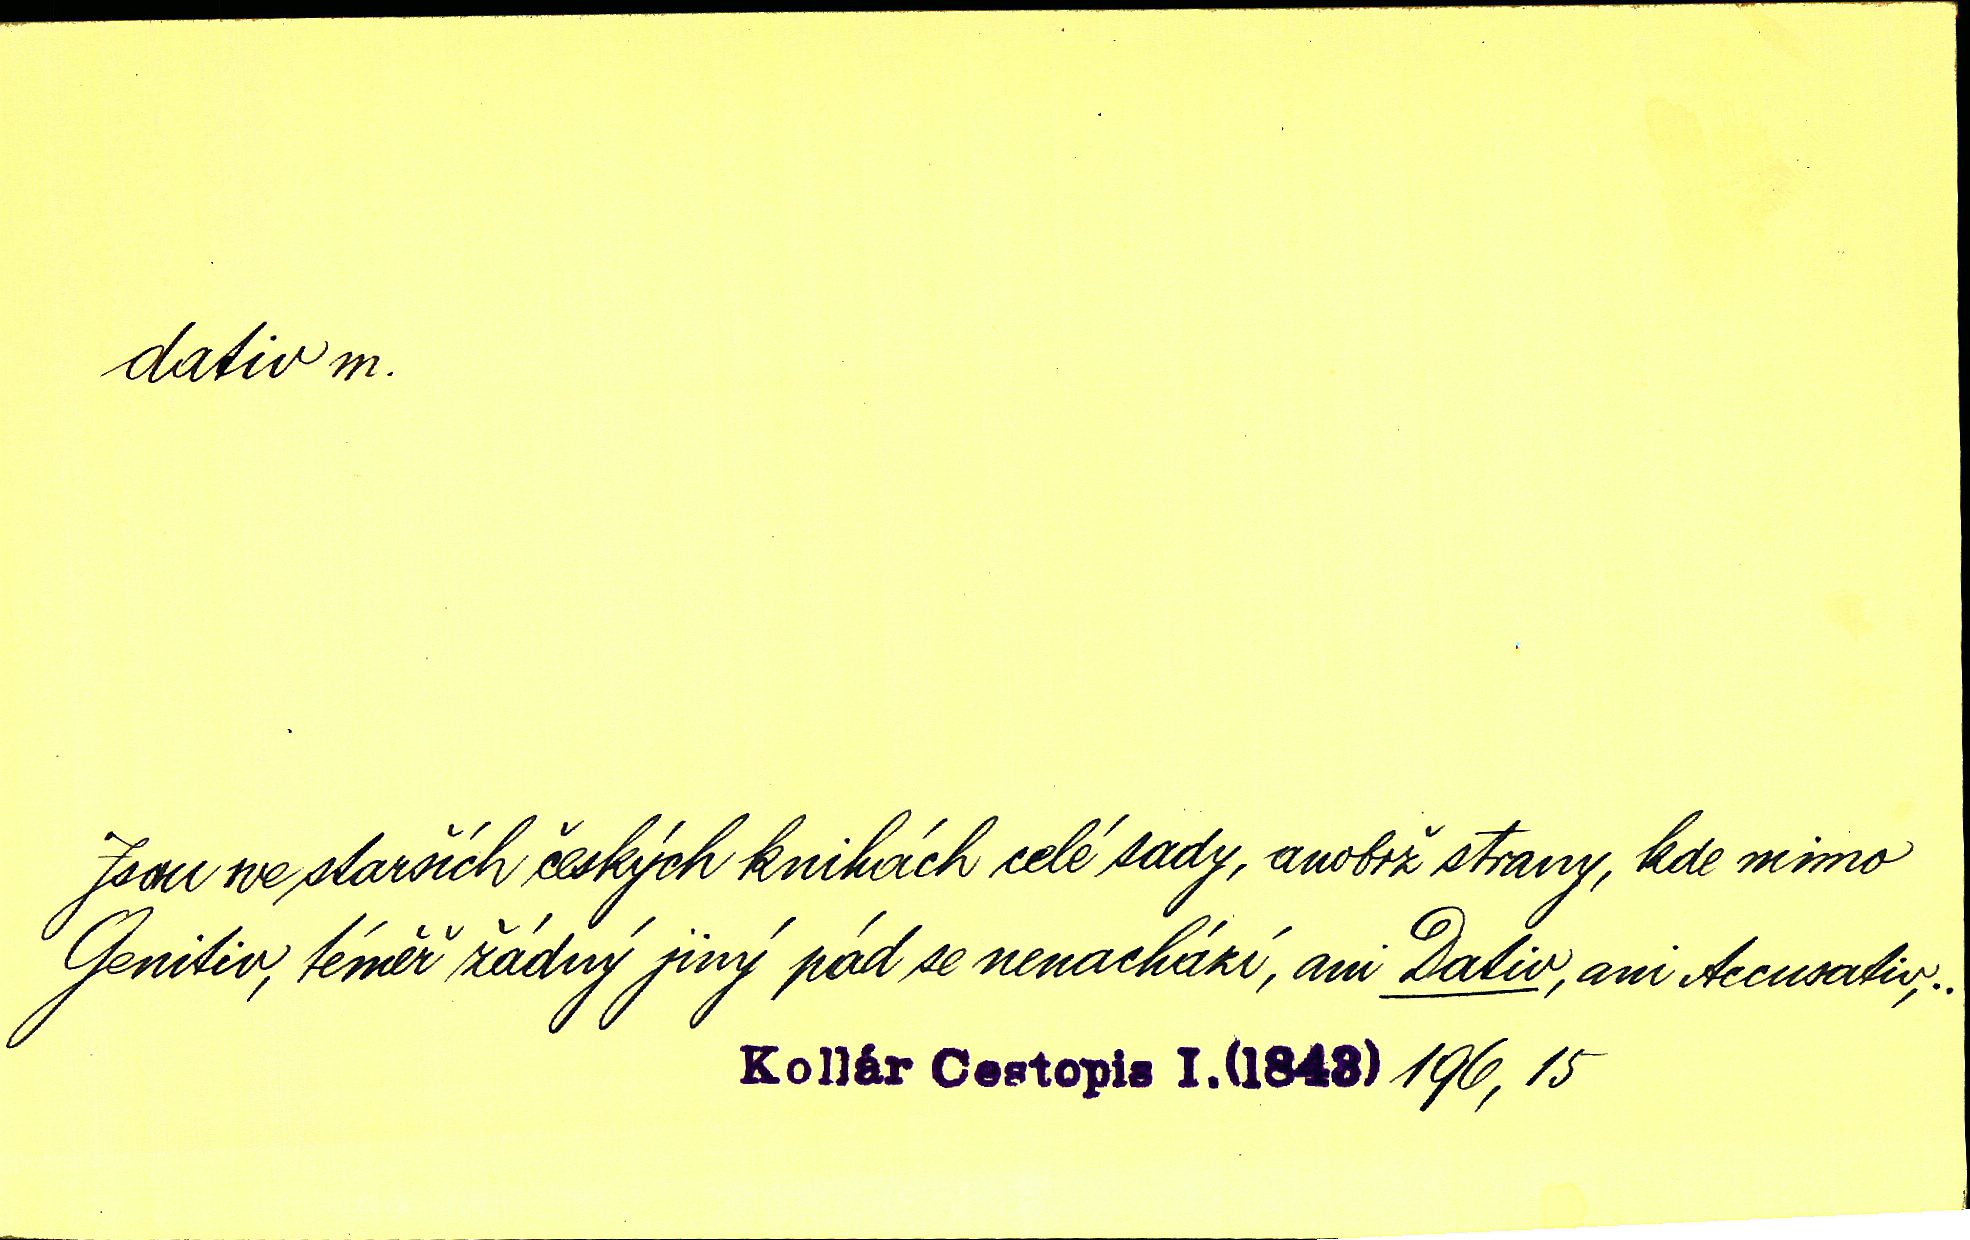 dativ m.
Jsou we starších českých knihách celé sady, anobrž strany, kde mimo
Genitiv, téměř žádný jiný pád se nenachází, ani Dativ, ani Accusativ,..
Kollár Cestopis I.(1843) 196, 15